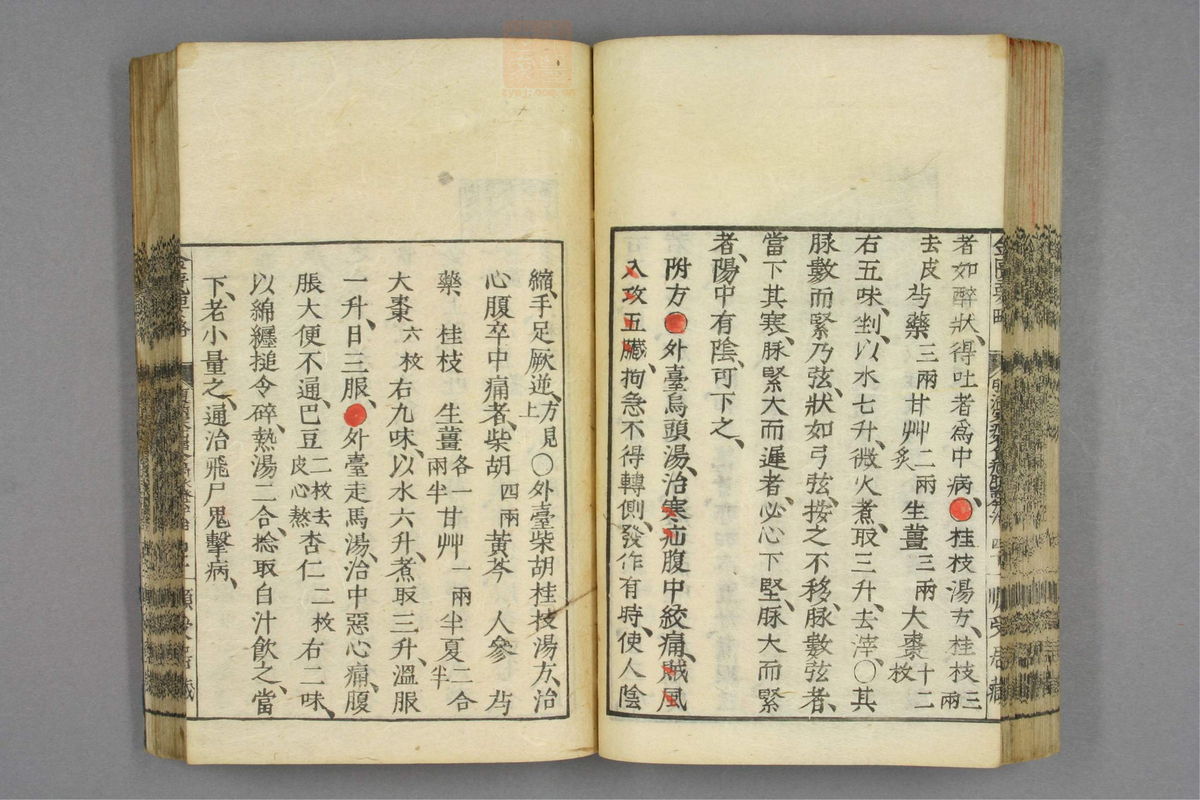 者如醉狀、得吐者爲中病、●桂枝湯方、桂枝三兩
去皮芍藥三兩甘艸二兩炙生薑三兩大棗十二枚
右五味、剉、以水七升、微火煮、取三升、去滓、○其
脉數而緊乃弦、狀如弓弦、按之不移、脉數弦者、
當下其寒、脉緊大而遲者、必心下堅、脉大而緊
者、陽中有陰、可下之、
附方●外臺烏頭湯、治寒疝腹中絞痛、賊風
入攻五臟、拘急不得轉側、發作有時、使人陰
縮、手足厥逆、方見上○外臺柴胡桂枝湯方、治
心腹卒中痛者、柴胡四兩黃芩人參芍
藥桂枝生薑各一兩半甘艸一兩半夏二合半
大棗六枚右九味、以水六升、煮取三升、溫服
一升、日三服、●外臺走馬湯、治中惡心痛、腹
脹大便不通、巴豆二枚去皮心熬杏仁二枚右二味、
以綿纏搥令碎、熱湯二合、捻取白汁飲之、當
下、老小量之、通治飛尸鬼擊病、